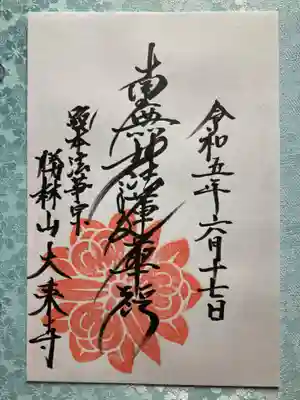 令和五年六月十七日
南無妙法蓮華経
顕本法華宗
勝林山大乗寺